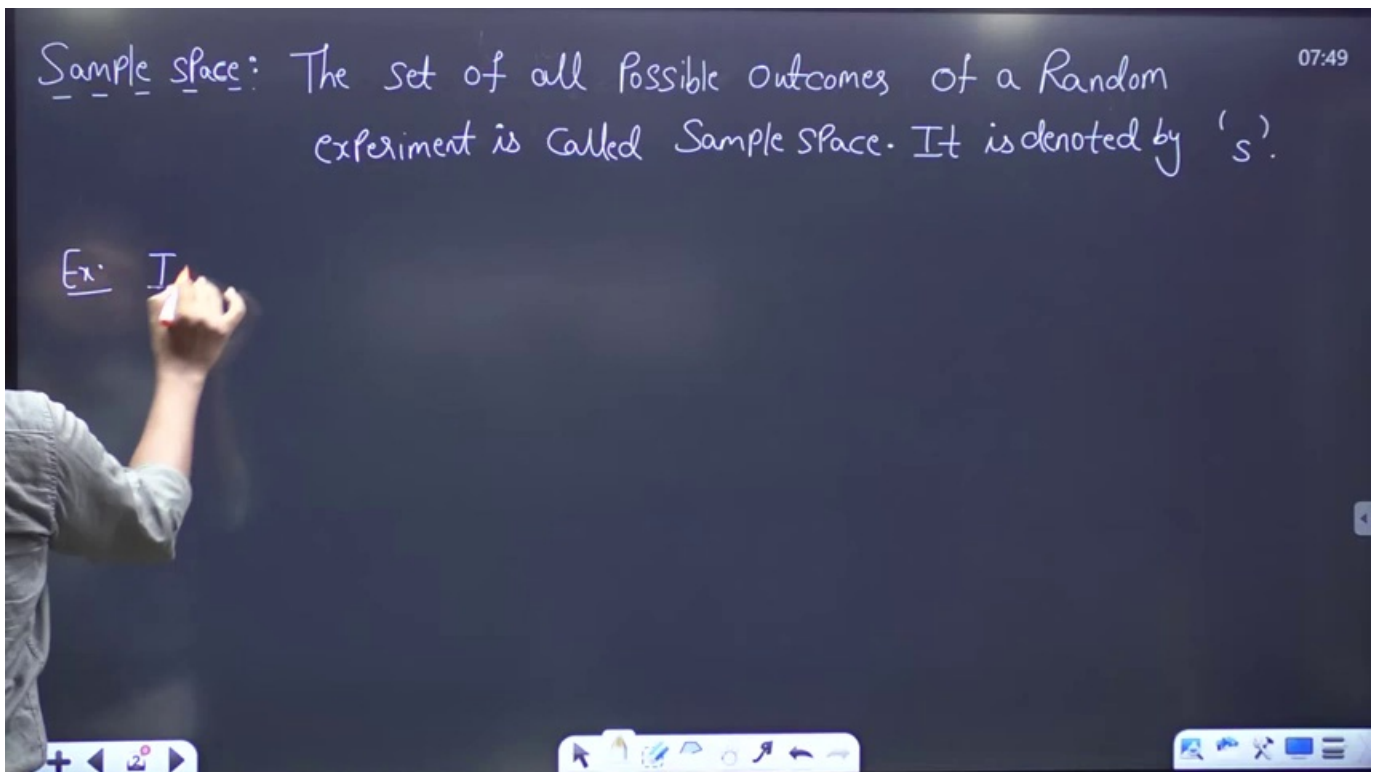 Sample space: The set of all Possible outcomes of a Random
experiment is Called Sample space. It is denoted by 's'.
Ex. I
07:49
2